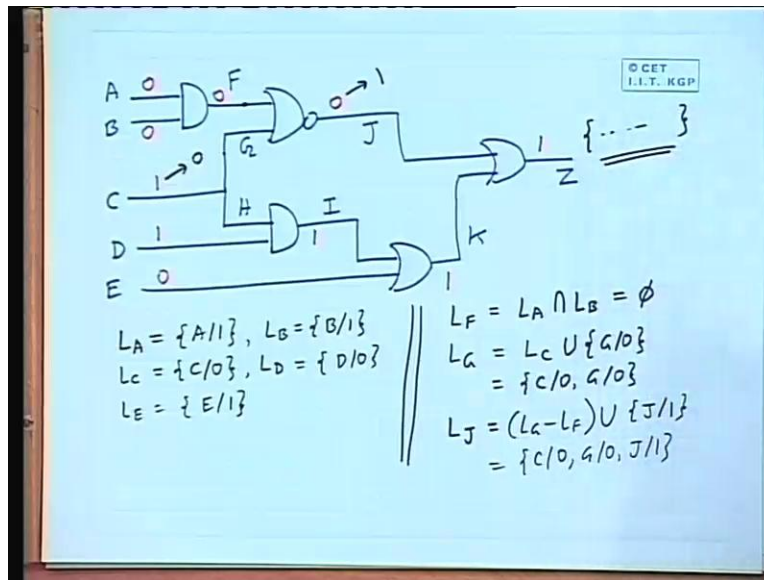 © CET
I.I.T. KGP
A 0
B 0
0 F
G
0 → 1
J
C 1 → 0
H
I
1
D 1
E 0
K
1
1
Z
{ ...- }
L_A = {A/1}, L_B = {B/1}
L_C = {C/0}, L_D = {D/0}
L_E = {E/1}
L_F = L_A ∩ L_B = ϕ
L_G = L_C ∪ {G/0}
= {C/0, G/0}
L_J = (L_G - L_F) ∪ {J/1}
= {C/0, G/0, J/1}